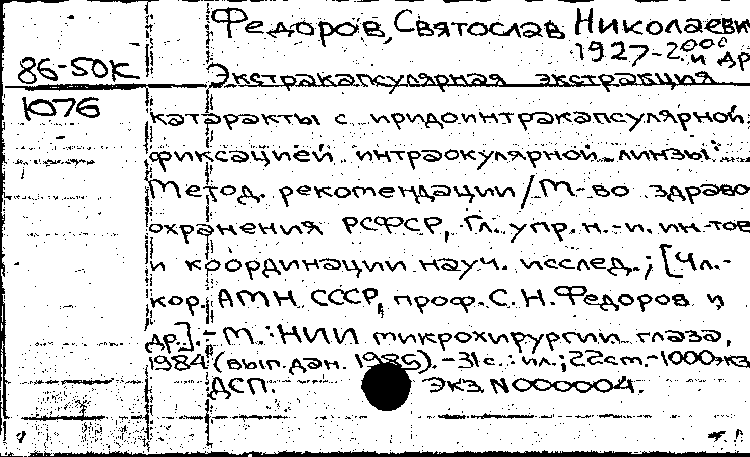 Федоров, Святослав Николаевич
1927-2000 и др
86-50К
Экстракапсулярная экстракция
1076
катаракты с иридоинтракапсулярной
фиксацией интраокулярной линзы:
Метод. рекомендации / М-во здраво
охранения РСФСР, Гл. упр. н.-и. ин-тов
и координации науч. исслед.; [Чл.-
кор. АМН СССР, проф. С. Н. Федоров и
др.]. - М.: НИИ микрохирургии глаза,
1984 (вып. дан. 1985). - 31 с.: ил.; 22 см. - 1000 экз
ДСП. Экз. N000004.